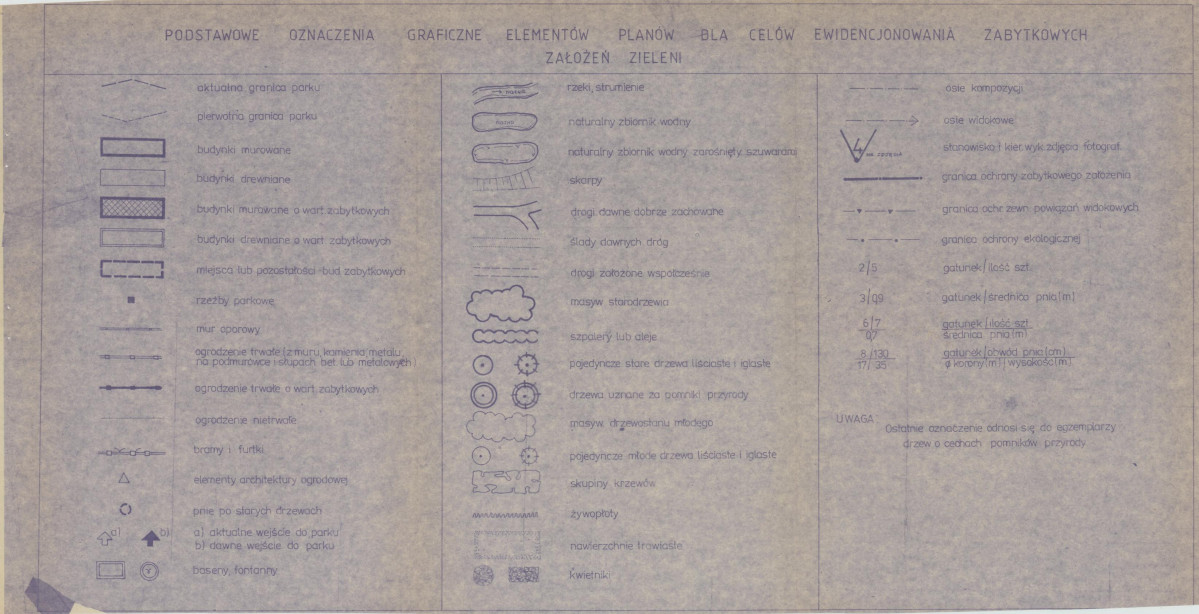 PODSTAWOWE OZNACZENIA GRAFICZNE ELEMENTÓW PLANÓW DLA CELÓW EWIDENCJONOWANIA ZABYTKOWYCH
ZAŁOŻEŃ ZIELENI
aktualna granica parku
pierwotna granica parku
budynki murowane
budynki drewniane
budynki murowane o wart zabytkowych
budynki drewniane o wart zabytkowych
miejsca lub pozostałości bud zabytkowych
rzeźby parkowe
mur oporowy
ogrodzenie trwałe (z muru, kamienia, metalu,
na podmurówce i słupach bet. lub metalowych)
ogrodzenie trwałe o wart zabytkowych
ogrodzenie nietrwałe
bramy i furtki
elementy architektury ogrodowej
pnie po starych drzewach
a) b) a) aktualne wejście do parku
b) dawne wejście do parku
baseny, fontanny
rzeki, strumienie
naturalny zbiornik wodny
naturalny zbiornik wodny zarośnięty szuwarami
skarpy
drogi dawne dobrze zachowane
ślady dawnych dróg
drogi założone współcześnie
masyw starodrzewia
szpalery lub aleje
pojedyncze stare drzewa liściaste i iglaste
drzewa uznane za pomniki przyrody
masyw drzewostanu młodego
pojedyncze młode drzewa liściaste i iglaste
skupiny krzewów
żywopłoty
nawierzchnie trawiaste
kwietniki
osie kompozycji
osie widokowe
4 NR. ZDJĘCIA stanowisko i kier. wyk. zdjęcia fotograf.
granica ochrony zabytkowego założenia
granica ochr zewn. powiązań widokowych
granica ochrony ekologicznej
2/5 gatunek/ilość szt.
3/09 gatunek/średnica pnia(m)
6/7 gatunek/ilość szt
0,7 średnica pnia(m)
8/130 gatunek/obwód pnia(cm)
17/35 ø korony(m)/wysokość(m)
UWAGA
Ostatnie oznaczenie odnosi się do egzemplarzy
drzew o cechach pomników przyrody